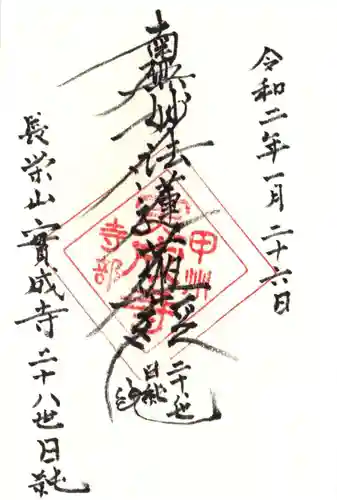 令和二年一月二十六日
南無妙法蓮華経
甲州
實成寺
寺部
長栄山實成寺二十八世日